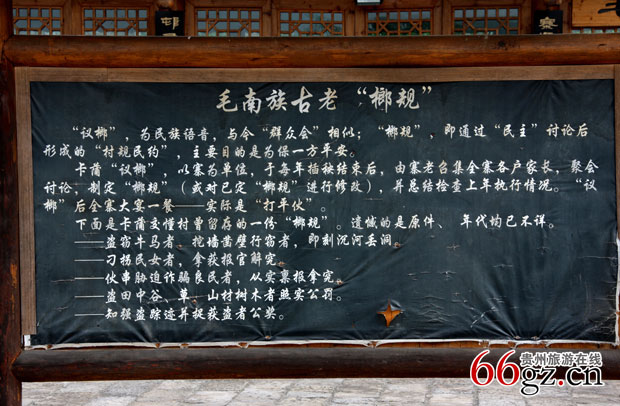 毛南族古老“榔规”
“议榔”，为民族语音，与今“群众会”相似；“榔规”，即通过“民主”讨论后
形成的“村规民约”，主要目的是为保一方平安。
卡蒲“议榔”，以寨为单位，于每年插秧结束后，由寨老召集全寨各户家长，聚会
讨论，制定“榔规”（或对已定“榔规”进行修改），并总结检查上年执行情况。“议
榔”后全寨大宴一餐——实际是“打平伙”。
下面是卡蒲交懂村曾留存的一份“榔规”。遗憾的是原件、年代均已不详。
——盗窃牛马者、挖墙凿壁行窃者，即刻沉河丢洞。
——刁拐民女者，拿获报官解究。
——伙串胁迫诈骗良民者，从实禀报拿究。
——盗田中谷、草、山村树木者照实公罚。
——知强盗踪迹并捉获盗者公奖。
寨
66gz.cn
贵州旅游在线